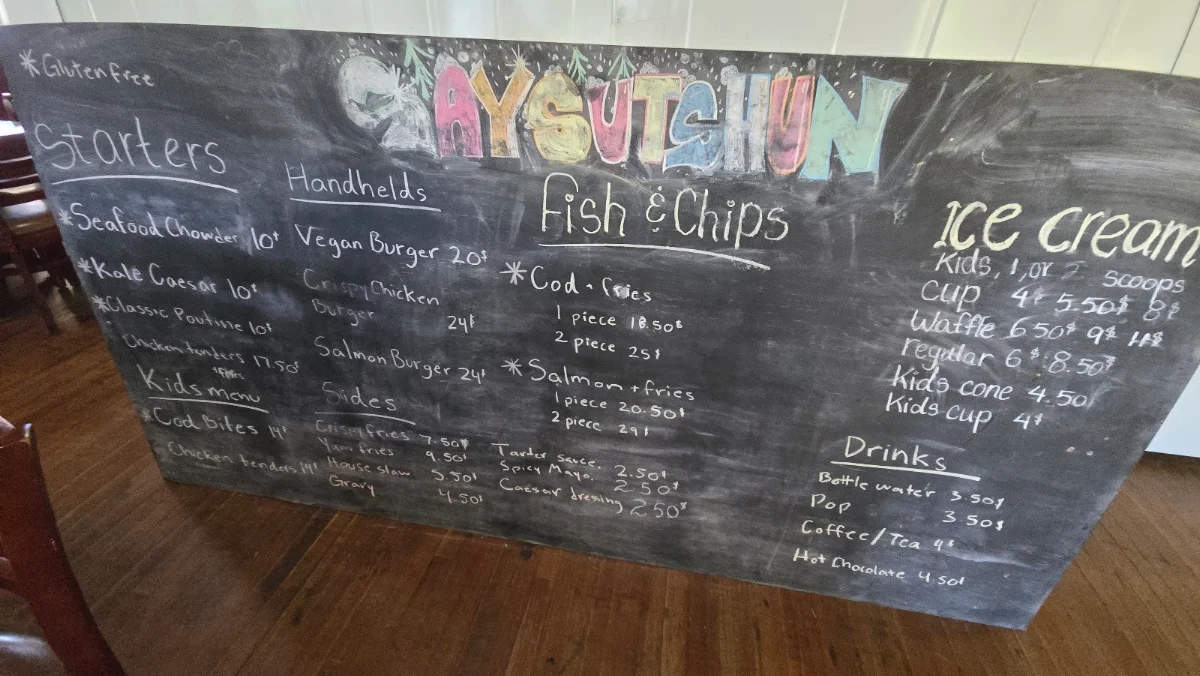 *Gluten free
GAYSUTSHUN
Starters
*Seafood Chowder 10$
*Kale Caesar 10$
*Classic Poutine 10$
Chicken tenders 17.50$
+fries
Kids menu
*Cod Bites 14$
Chicken tenders 14$
Handhelds
Vegan Burger 20$
Crispy Chicken
Burger 24$
Salmon Burger 24$
Sides
Crispy fries 7.50$
Yam fries 9.50$
House slaw 3.50$
Gravy 4.50$
Fish & Chips
*Cod + fries
1 piece 18.50$
2 piece 25$
*Salmon + fries
1 piece 20.50$
2 piece 29$
Tarter sauce. 2.50$
Spicy Mayo. 2.50$
Caesar dressing 2.50$
Ice cream
Kids, 1, or 2 scoops
cup 4$ 5.50$ 8$
Waffle 6.50$ 9$ 11$
regular 6$ 8.50$
Kids cone 4.50
Kids cup 4$
Drinks
Bottle water 3.50$
Pop 3.50$
Coffee/Tea 4$
Hot Chocolate 4.50$